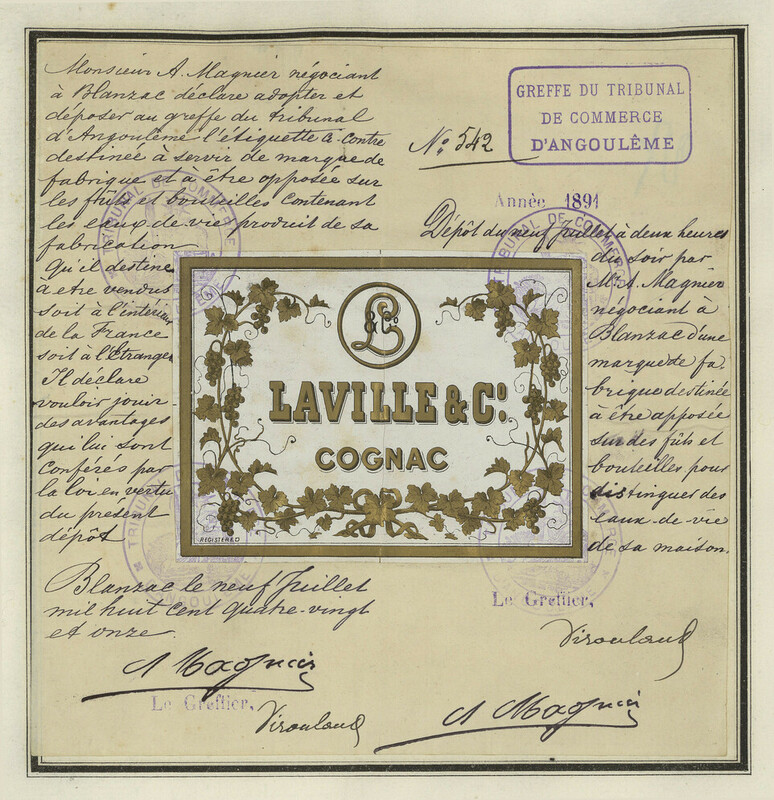 Monsieur A. Magnier négociant
à Blanzac déclare adopter et
déposer au greffe du tribunal
d'Angoulême l'étiquette ci-contre
destinée à servir de marque de
fabrique et à être apposée sur
les fûts et bouteilles contenant
les eaux-de-vie produit de sa
fabrication
Qu'il destine
à etre vendus
soit à l'intérieur
de la France
soit à l'Étranger
Il déclare
vouloir jouir
des avantages
qui lui sont
conférés par
la loi en vertu
du présent
dépôt
Blanzac le neuf Juillet
mil huit cent quatre-vingt
et onze.
A Magnier
Le Greffier,
GREFFE DU TRIBUNAL
DE COMMERCE
D'ANGOULÊME
No. 542
Année 1891
Dépôt du neuf Juillet à deux heures
du soir par
Mr. A. Magnier
négociant à
Blanzac d'une
marque de fa-
brique destinée
à être apposée
sur des fûts et
bouteilles pour
distinguer des
eaux-de-vie
de sa maison.
Le Greffier,
A Magnier
L & Co
LAVILLE & Co.
COGNAC
REGISTERED
TRIBUNAL DE COMMERCE
TRIBUNAL DE COMMERCE